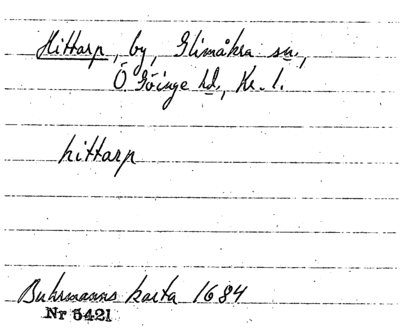 Hittarp, by, Glimåkra sn,
Ö Göinge hd, Kr. l.
hittarp
Buhrmanns karta 1684
Nr 5421